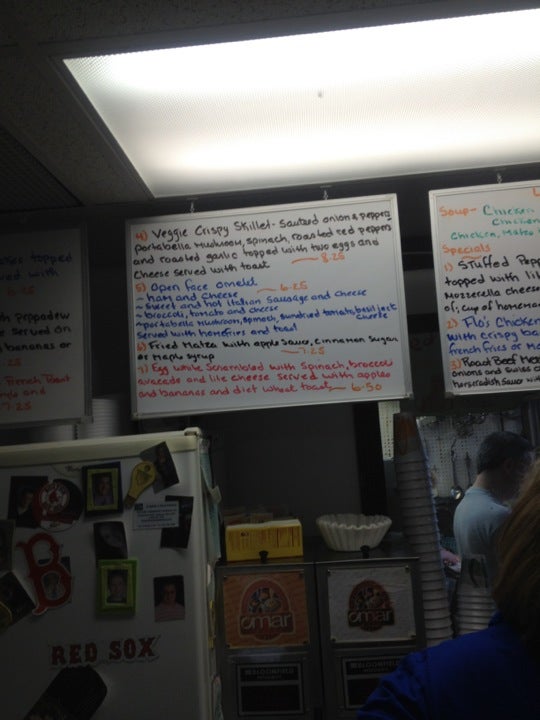 4) Veggie Crispy Skillet - Sauteed onions, peppers
portabella mushroom, spinach, roasted red peppers
and roasted garlic topped with two eggs and
cheese served with toast 8.25
5) Open face omelet 6.25
~ ham and cheese
~ sweet and hot Italian Sausage and cheese
~ broccoli, tomato and cheese
~ portabella mushroom, spinach, sundried tomato, basil jack cheese
served with homefries and toast
6) Fried Matza with apple sauce, cinnamon sugar
or maple syrup 7.25
7) Egg white scrambled with spinach, broccoli
avocado and lite cheese served with apples
and bananas and diet wheat toast 6.50
topped
served with
6.25
th peppadew
served on
bananas or
.25
French Toast
7.25
Soup - Chicken
Chicken
Chicken, Matza
Specials
1) Stuffed Pepp
topped with
Mozzerella cheese
of, cup of homema
2) Flo's Chicken
with crispy
french fries or
3) Roast Beef
onions and swiss
horseradish sauce
B
RED SOX
omar
omar
BLOOMFIELD
BLOOMFIELD